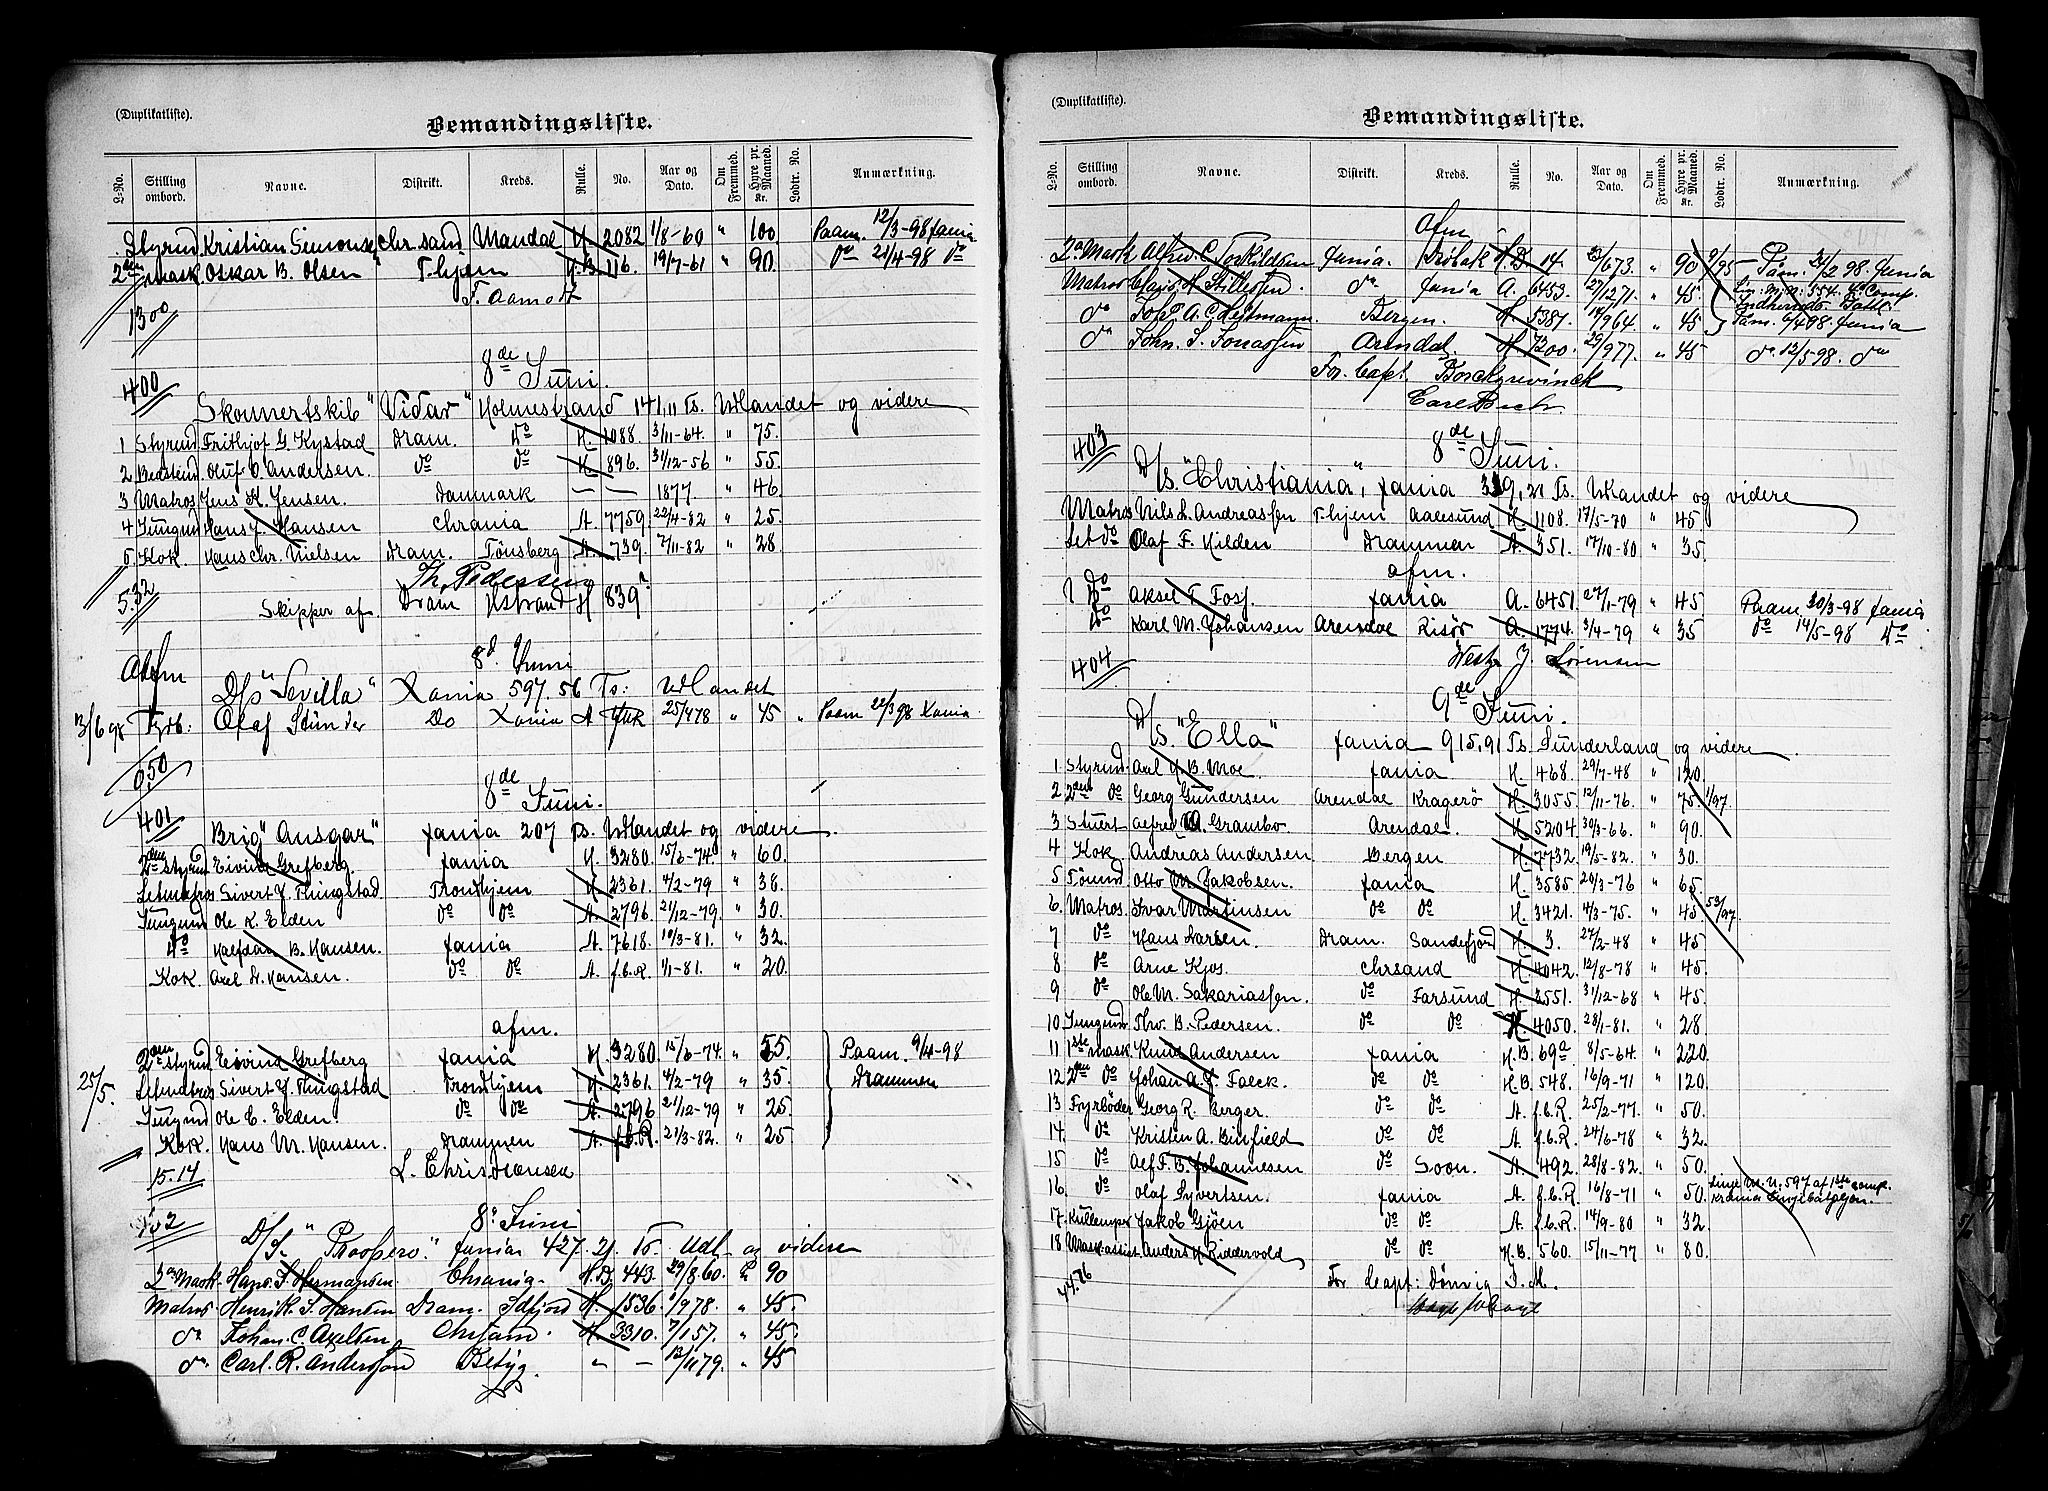 (Duplikatliste).
Bemandingsliste.
L-No. Stilling ombord. Navne. Distrikt. Kreds. Rulle. No. Aar og Dato. Om Fremmed. Hyre pr. Maaned. Kr. Lodtr. No. Anmærkning.
Styrmd Kristian Simonsen Chr.sand Mandal H 2082 1/8-60 " 100 Paam. 12/3-98 fania
2den mask. Oskar B. Olsen T.hjem H.B. 116. 19/7-61 " 90. do 21/4-98 do
F. Aamodt
1300
8de Juni.
400
Skonnertskib "Vidar" Holmestrand 141,11 Ts. Udlandet og videre
1 Styrmd Frithjof G. Kystad Dram. do H. 1088. 3/11-64. " 75.
2 Bestmd. Oluf O. Andersen. do do H. 896. 31/12-56 " 55.
3 Matros Jens K. Jensen. Danmark — — 1877. " 46.
4 Jungmd Hans J. Hansen Chrania A. 7759. 22/4-82 " 25.
5 Kok. Hans Chr. Nielsen Dram. Tønsberg A. 739. 7/11-82 " 28.
Th. Pedersen
5.32
Skipper af Dram Hstrand H 839
8d Juni
Afm
D/s "Sevilla" Xania 597.56 Ts: Udlandet
13/6 98 Fyrb: Olaf Stünder Do Xania A 25/4 78 " 45 " Paam 22/3 98 Xania
0,50
8de Juni.
401
Brig "Ansgar" fania 207 Ts. Udlandet og videre
2den Styrmd Eivind Grefberg. fania H. 3280. 15/6-74. " 60.
Letmatros Sivert J. Ringstad. Trondhjem H. 2361. 4/2-79 " 38.
Jungmd Ole K. Elden do do A. 2796. 21/12-79. " 30.
do Halfdan B. Hansen. fania A. 7618. 10/3-81. " 32.
Kok. Axel L. Hansen. do do A. f.C.R. 1/1-81. " 20.
afm.
2den styrmd Eivind Grefberg fania H. 3280. 15/6-74. " 55. Paam. 9/4-98
25/5. Letmatros Sivert J. Ringstad Trondhjem H. 2361. 4/2-79 " 35. Drammen
Jungmd Ole E. Elden. do do A. 2796 21/12-79 " 25
Kok. Hans M. Hansen. Drammen A. f.C.R. 21/3-82. " 25
15.14 L. Christiansen
402 8de Juni
D/S. "Prospero." fania 427.21 Ts. Udl og videre
2en Mask. Hans. J. Hermansen. Chrania. H.B. 443. 29/8.60. " 90
Matros Henrik. S. Hansen Dram. Idfjord H. 1536. 1/9 78. " 45.
do Johan. C. Axelsen Chrsand. H. 3310. 7/1 57. " 45.
do Carl. R. Andersson " — 13/11 79. " 45
(Duplikatliste).
Bemandingsliste.
L-No. Stilling ombord. Navne. Distrikt. Kreds. Rulle. No. Aar og Dato. Om Fremmed. Hyre pr. Maaned. Kr. Lodtr. No. Anmærkning.
Afm
2en Mask Alfred. C. Torkildsen fania. Drøbak H.B 14. 23/6 73. " 90 9/95 Paam. 24/2 98. fania
Matros Claus. H. Stillefsen. do fania A. 6453. 27/12 71. " 45. Lin. M. n. 554. 4. Comp. Indherreds Batl.
do Johs. A. C. Hejtmann. Bergen. H 5387. 14/9 64. " 45 Paam. 6/4 98. fania
do John. S. Jonassen Arendal H 7200. 29/9 77. " 45 do 12/5-98. do
For. Capt. Borchgrevinck
Carl Bech
403 8de Juni.
D/s. "Christiania", fania 319,21 Ts. Udlandet og videre
Matros Nils L. Andreassen T.hjem Aalesund H. 1108. 17/5-70 " 45
Let do Olaf F. Kilden Drammen A. 351. 17/10-80 " 35.
afm.
1 Do Aksel T. Foss. fania A. 6451. 27/1-79 " 45 Paam. 30/3-98 fania
do Karl M. Johansen Arendal Risør A. 1774. 3/4-79 " 35 do 14/5-98 do
404 J. Sørensen
9de Juni.
D/s. "Ella" fania 915,91 Ts. Sunderland og videre
1 Styrmd. Axel J. B. Moe. fania H. 468. 29/7-48 " 120.
2 2den do Georg Gundersen Arendal Kragerø H. 3055. 12/11-76. " 75. 1/97.
3 Stuert Alfred M. Grambo. Arendal. H. 5204. 30/3-66. " 90.
4 Kok Andreas Andersen Bergen H. 7732. 19/5-82. " 30.
5 Tømmd Otto M. Jakobsen. fania H. 3585. 20/3-76 " 65.
6. Matros. Ivar Martinsen do do H. 3421. 4/3-75. " 45 53/97
7 do Hans Larsen. Dram. Sandefjord H. 3. 27/2-48 " 45
8 do Arne Kjos. Chrsand H. 4042. 12/8-78 " 45.
9 do Ole M. Sakariassen. do Farsund H. 2551. 31/12-68 " 45.
10 Jungmd Thv. B. Pedersen. do do H. 4050. 28/1-81. " 28
11 1ste mask. Knud Andersen fania H.B. 69a 8/5-64. " 220.
12 2den do Johan A. J. Falck. do do H.B. 548. 16/9-71 " 120.
13 Fyrbøder Georg R. Berger. do do A. f.C.R. 25/2-77. " 50.
14. do Kristen A. Binfield do do A f.C.R. 24/6-78 " 32.
15 do Alf B. Johannesen do Soon. A. 492. 28/8-82. " 50.
16 do Olaf Syvertsen. fania A. f.C.R. 16/8-71 " 50. Linie M. N. 597 af 1ste Comp. Krania Linjebataljon.
17. Kullemper Jakob Gjøen do do A. f.C.R. 14/9-80 " 32.
18 Mask.assist. Anders H. Riddervold do do H.B. 560. 15/11-77 " 80.
44.76
For Capt: Dønvig J. M.